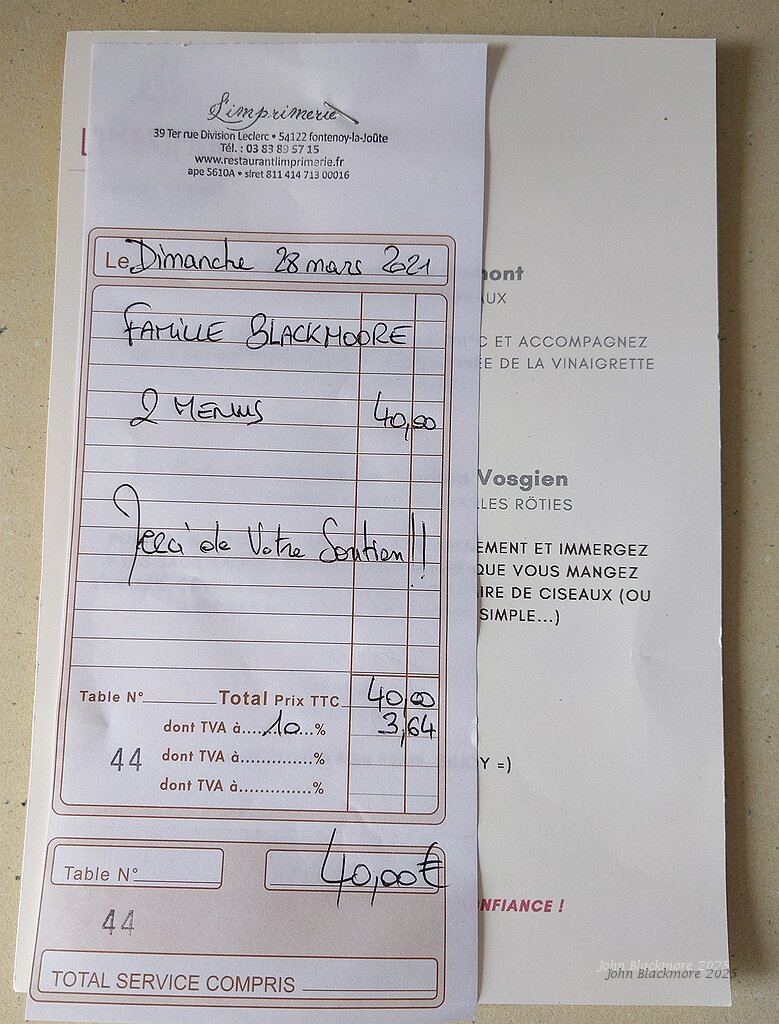 L'imprimerie
39 Ter rue Division Leclerc • 54122 fontenoy-la-Joûte
Tél. : 03 83 89 57 15
www.restaurantlimprimerie.fr
ape 5610A • siret 811 414 713 00016
Le Dimanche 28 mars 2021
FAMILLE BLACKMOORE
2 MENUS 40,00
Merci de Votre Soutien !!
Table N° Total Prix TTC 40,00
dont TVA à.....10...% 3,64
44 dont TVA à..............%
dont TVA à..............%
Table N° 40,00€
44
TOTAL SERVICE COMPRIS
mont
AUX
C ET ACCOMPAGNEZ
ÉE DE LA VINAIGRETTE
Vosgien
LLES RÖTIES
EMENT ET IMMERGEZ
QUE VOUS MANGEZ
IRE DE CISEAUX (OU
SIMPLE...)
Y =)
NFIANCE !
John Blackmore 2025
John Blackmore 2025